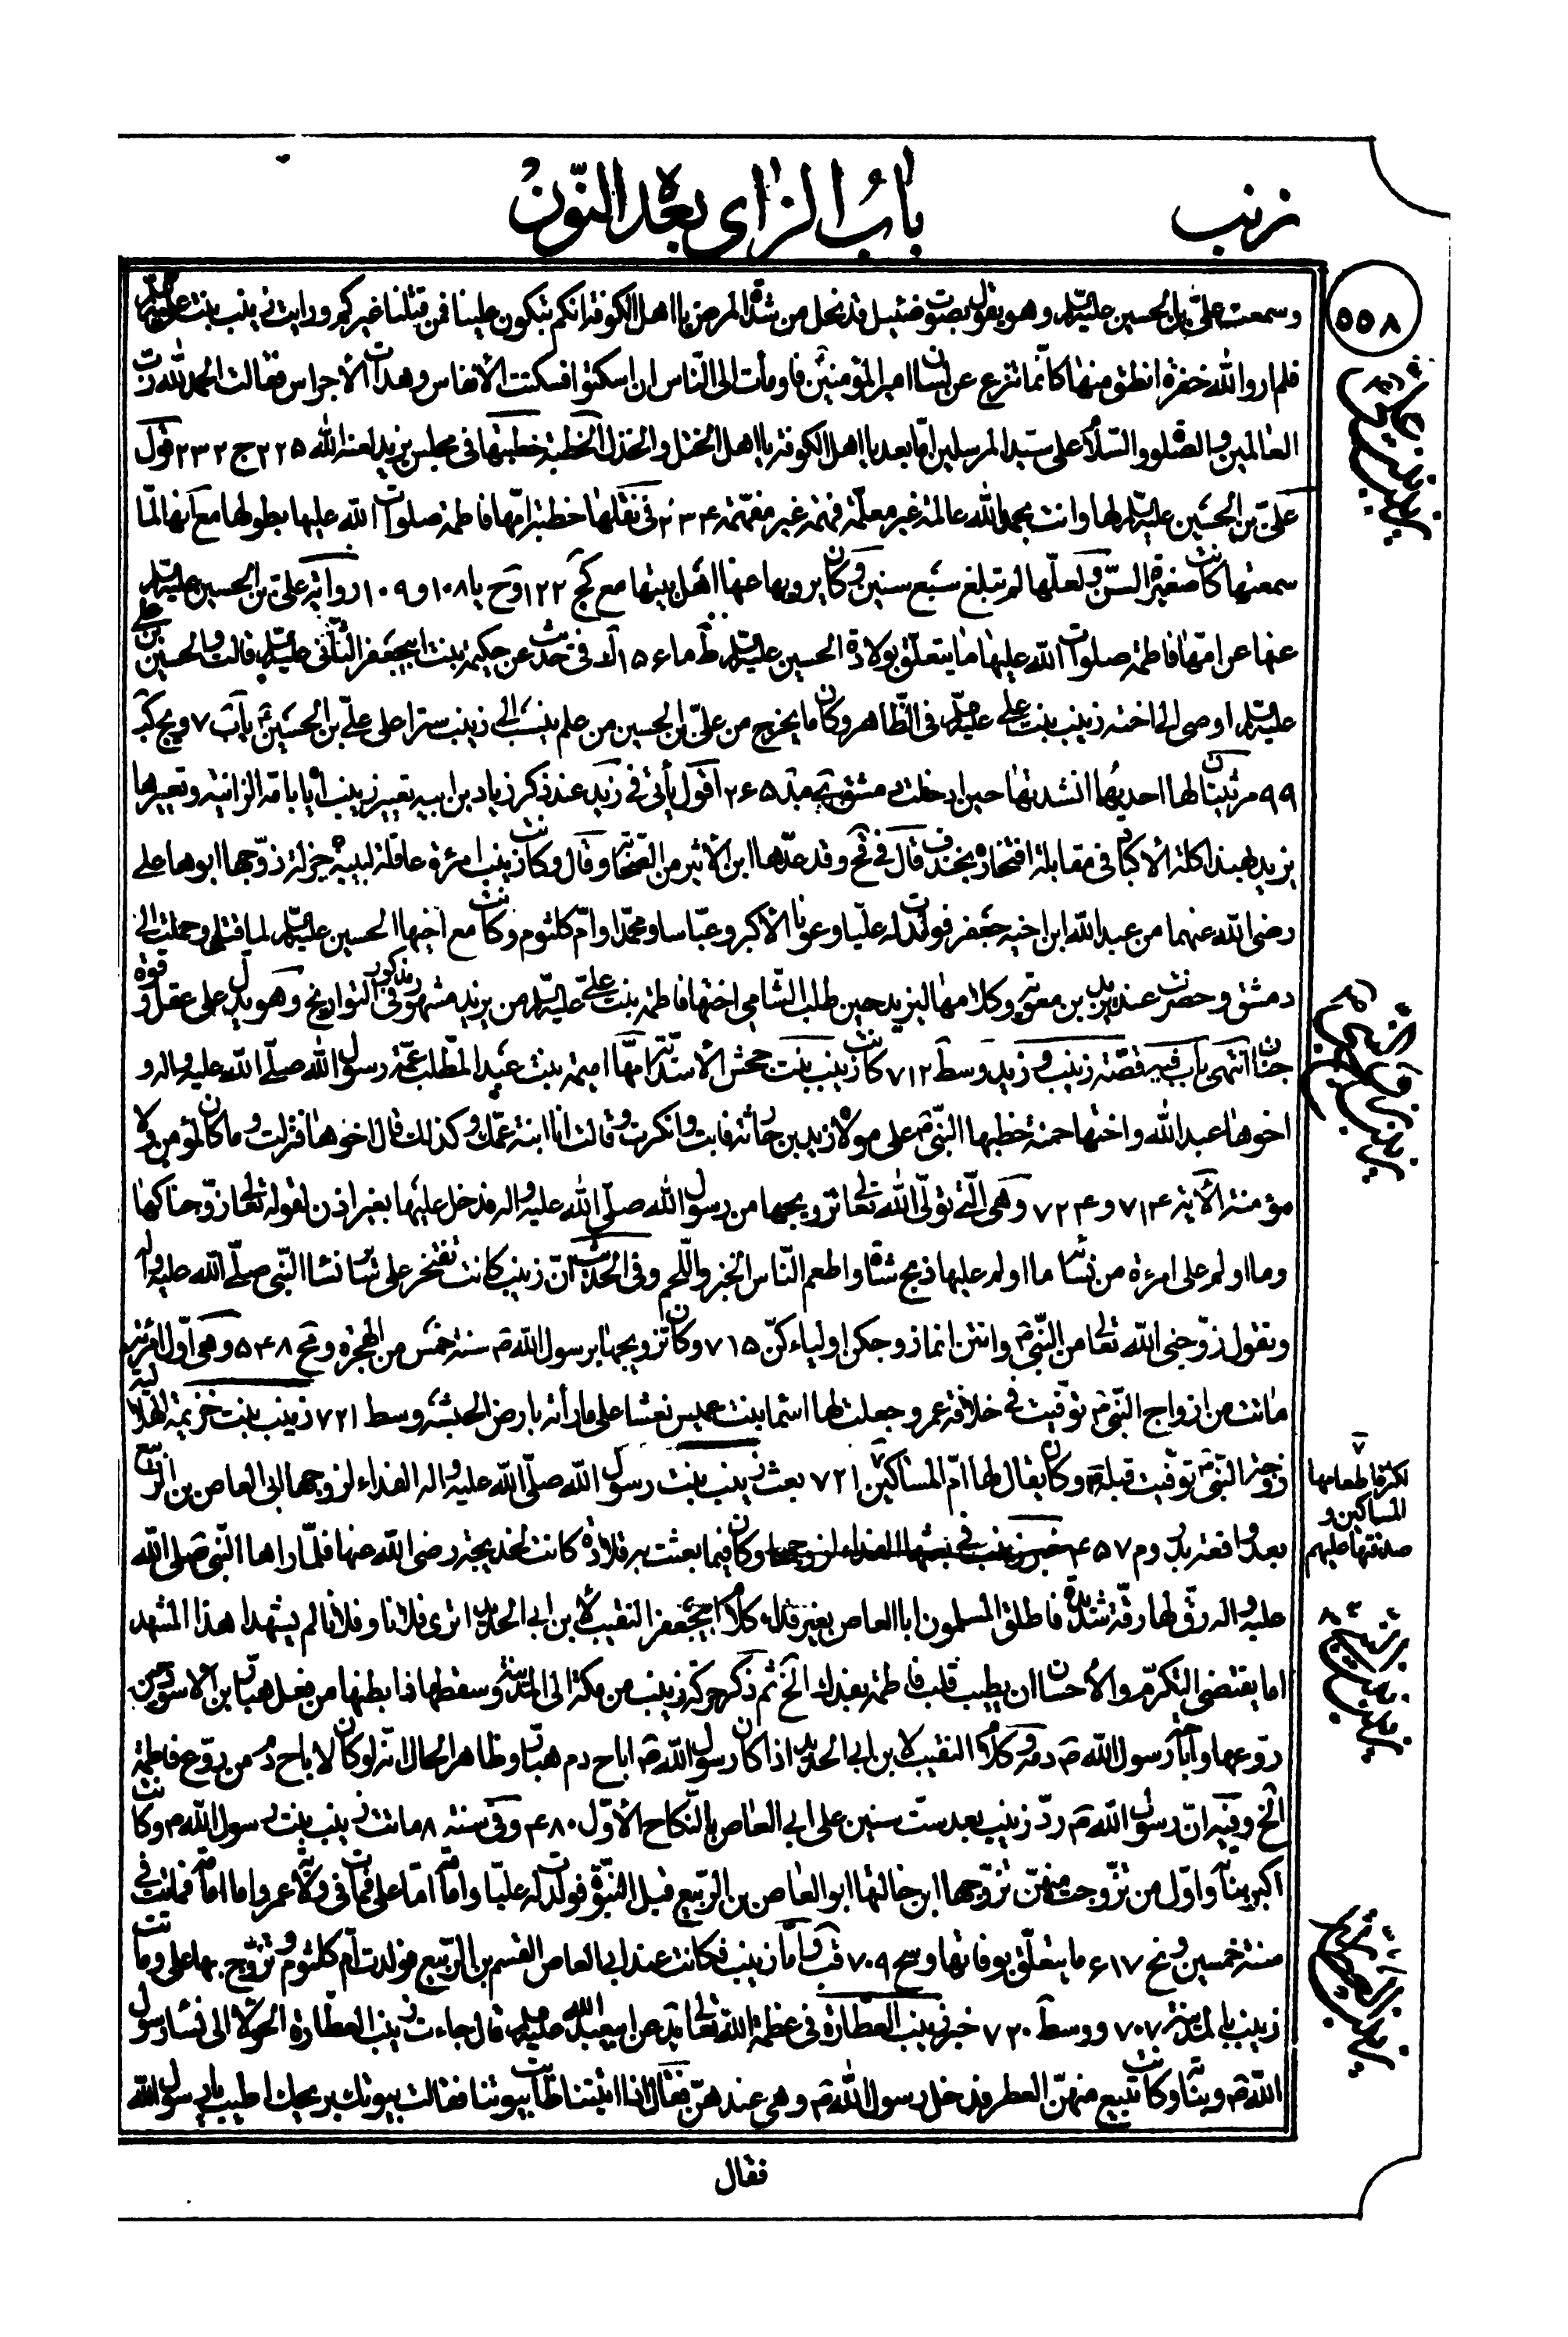 زنب
باب الزاي بعده النون
٥٥٨
وسمعت علي بن الحسين عليه السلام وهو يقول بصوت ضئيل قد نحل من شدة المرض يا اهل الكوفة انكم تبكون علينا فمن قتلنا غيركم ورايت زينب بنت علي
فلم ار والله خفرة انطق منها كانما تنزع عن لسان امير المؤمنين فاومأت الى الناس ان اسكتوا فسكنت الأنفاس وهدأت الأجراس فقالت الحمد لله رب
العالمين والصلوة والسلام على سيد المرسلين اما بعد يا اهل الكوفة يا اهل الختل والخذل الخطبة خطبتها في مجلس يزيد لعنه الله ٢٢٥ ج ٢٣٢ قول
علي بن الحسين عليه السلام لها وانت بحمد الله عالمة غير معلمة فهمة غير مفهمة ٢٣٤ في نقلها خطبة امها فاطمة صلوات الله عليها بطولها مع انها لما
سمعتها كانت صغيرة السن ولعلها لم تبلغ سبع سنين وكان يرويها عنها اهل بيتها مع كج ١٢٢ وح يا ١٠٨ و ١٠٩ رواية علي بن الحسين عليه السلام
عنها عن امها فاطمة صلوات الله عليها ما يتعلق بولادة الحسين عليه السلام ط ما ١٥٦ لا في حديث عن حكيمة بنت ابيجعفر الثاني عليه السلام قالت والحسين بن علي
عليه السلام اوصى الى اخته زينب بنت علي عليه السلام في الظاهر وكان ما يخرج من علي بن الحسين من علم ينسب الى زينب سترا على علي بن الحسين
٩٩ مرثيتان لها احديهما انشدتها حين ادخلت دمشق ٢٦٥ اقول يأتي في زيد عند ذكر زياد بن ابيه تعيير زينب اياه بامه الزانية وتعييرها
يزيد بهند اكلة الأكباد في مقابلة افتخاره بخندف قال في قح وقد عدها ابن الأثير من الصحابة وقال وكانت زينب امرءة عاقلة لبيبة جزلة زوجها ابوها علي
رضي الله عنهما من عبد الله ابن اخيه جعفر فولدت له عليا وعونا الأكبر وعباسا ومحمدا وام كلثوم وكانت مع اخيها الحسين عليه السلام لما قتل وحملت الى
دمشق وحضرت عند يزيد بن معوية وكلامها ليزيد حين طلب الشامي اختها فاطمة بنت علي عليه السلام من يزيد مشهور مذكور في التواريخ وهو يدل على عقل وقوة
جنان انتهى باب فيه قصة زينب وزيد وسط ٧١٢ كانت زينب بنت جحش الأسدية امها اميمة بنت عبد المطلب عمة رسول الله صلى الله عليه واله و
اخوها عبد الله واختها حمنة خطبها النبي ص على مولاه زيد بن حارثة فابت وانكرت وقالت انا ابنة عمك وكذلك قال اخوها فنزلت وما كان لمؤمن ولا
مؤمنة الأية ٧١٤ و ٧٢٤ وهي التي تولى الله تعالى تزويجها من رسول الله صلى الله عليه واله فدخل عليها بغير اذن لقوله تعالى زوجناكها
وما اولم على امرءة من نسائه ما اولم عليها ذبح شاة واطعم الناس الخبز واللحم وفي الحديث ان زينب كانت تفتخر على سائر نساء النبي صلى الله عليه واله
وتقول زوجني الله تعالى من النبي ص وانتن انما زوجكن اولياءكن ٧١٥ وكان تزويجها برسول الله ص سنة خمس من الهجرة وقح ٥٤٨ وهي اول امرئة
ماتت من ازواج النبي ص توفيت في خلافة عمر وجعلت لها اسماء بنت عميس نعشا على ما رأته بارض الحبشة وسط ٧٢١ زينب بنت خزيمة الهلالية
زوجة النبي ص توفيت قبله ص وكان يقال لها ام المساكين ٧ ٧٢١ بعث زينب بنت رسول الله صلى الله عليه واله الفداء لزوجها ابي العاص بن الربيع
بعد واقعة بدر وم ٤٥٧ خبر زينب في بعثها الفداء لزوجها وكان فيما بعثت به قلادة كانت لخديجة رضي الله عنها فلما راها النبي صلى الله
عليه واله رق لها رقة شديدة فاطلق المسلمون ابا العاص بغير فداء كلام ابيجعفر النقيب لابن ابي الحديد اترى فلانا وفلانا لم يشهدا هذا المشهد
اما يقتضي التكرم والأحسان ان يطيب قلب فاطمة بفدك الخ ثم ذكر حركة زينب من مكة الى المدينة وسقطها ذا بطنها من فعل هبار بن الأسود حين
روعها واباحة رسول الله ص دمه وكلام النقيب لابن ابي الحديد اذا كان رسول الله ص اباح دم هبار وظاهر الحال انه لو كان لاباح دم من روع فاطمة
الخ وفيه ان رسول الله ص رد زينب بعد ست سنين على ابي العاص بالنكاح الأول ٤٨٠ وفي سنة ٨ ماتت زينب بنت رسول الله ص وكانت
اكبر بناته واول من تزوجت منهن تزوجها ابن خالتها ابو العاص بن الربيع قبل النبوة فولدت له عليا وامامة اما علي فمات في ولاية عمر واما امامة فماتت في
سنة خمسين ونح ٦١٧ ما يتعلق بوفاتها وسح ٧٠٩ قب واما زينب فكانت عند ابي العاص القسم بن الربيع فولدت ام كلثوم وتزوج بها علي وماتت
زينب بالمدينة ٧٠٧ ووسط ٧٢٠ خبر زينب العطارة في عظمة الله تعالى يد عن ابيعبد الله عليه السلام قال جاءت زينب العطارة الحولاء الى نساء رسول
الله ص وبناته وكانت تبيع منهن العطر فدخل رسول الله ص وهي عندهن فقال اذا اتيتنا طابت بيوتنا فقالت بيوتك بريحك اطيب يا رسول الله
زينب بنت جحش
٧
لكثرة اطعامها
المساكين و
صدقتها عليهم
فقال